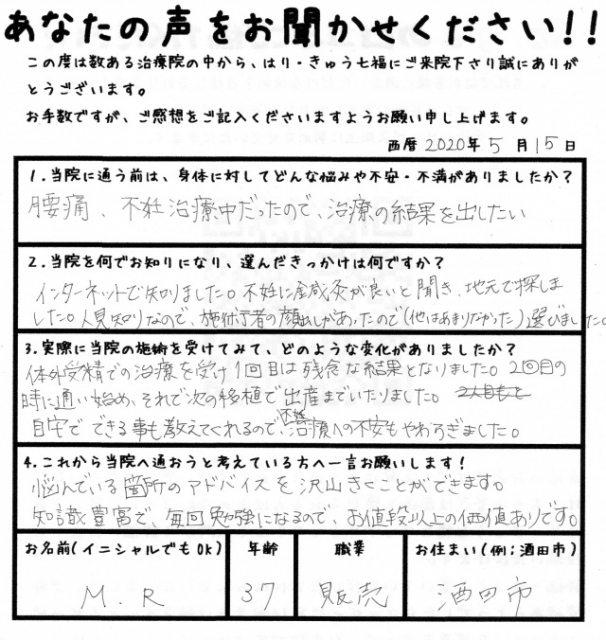 あなたの声をお聞かせください!!
この度は数ある治療院の中から、はり・きゅう七福にご来院下さり誠にありが
とうございます。
お手数ですが、ご感想をご記入くださいますようお願い申し上げます。
西暦 2020年 5 月 15 日
1.当院に通う前は、身体に対してどんな悩みや不安・不満がありましたか?
腰痛、不妊治療中だったので、治療の結果を出したい
2.当院を何でお知りになり、選んだきっかけは何ですか?
インターネットで知りました。不妊に鍼灸が良いと聞き、地元で探しま
した。人見知りなので、施術者の顔出しがあったので(他はあまりなかった)選びました。
3.実際に当院の施術を受けてみて、どのような変化がありましたか?
体外受精での治療を受け1回目は残念な結果となりました。2回目の
時に通い始め、それで次の移植で出産までいたりました。 2人目もと
自宅でできる事も教えてくれるので、不妊治療への不安もやわらぎました。
4.これから当院へ通おうと考えている方へ一言お願いします!
悩んでいる箇所のアドバイスを沢山きくことができます。
知識豊富で、毎回勉強になるので、お値段以上の価値ありです。
お名前(イニシャルでもOK) 年齢 職業 お住まい(例:酒田市)
M.R 37 販売 酒田市